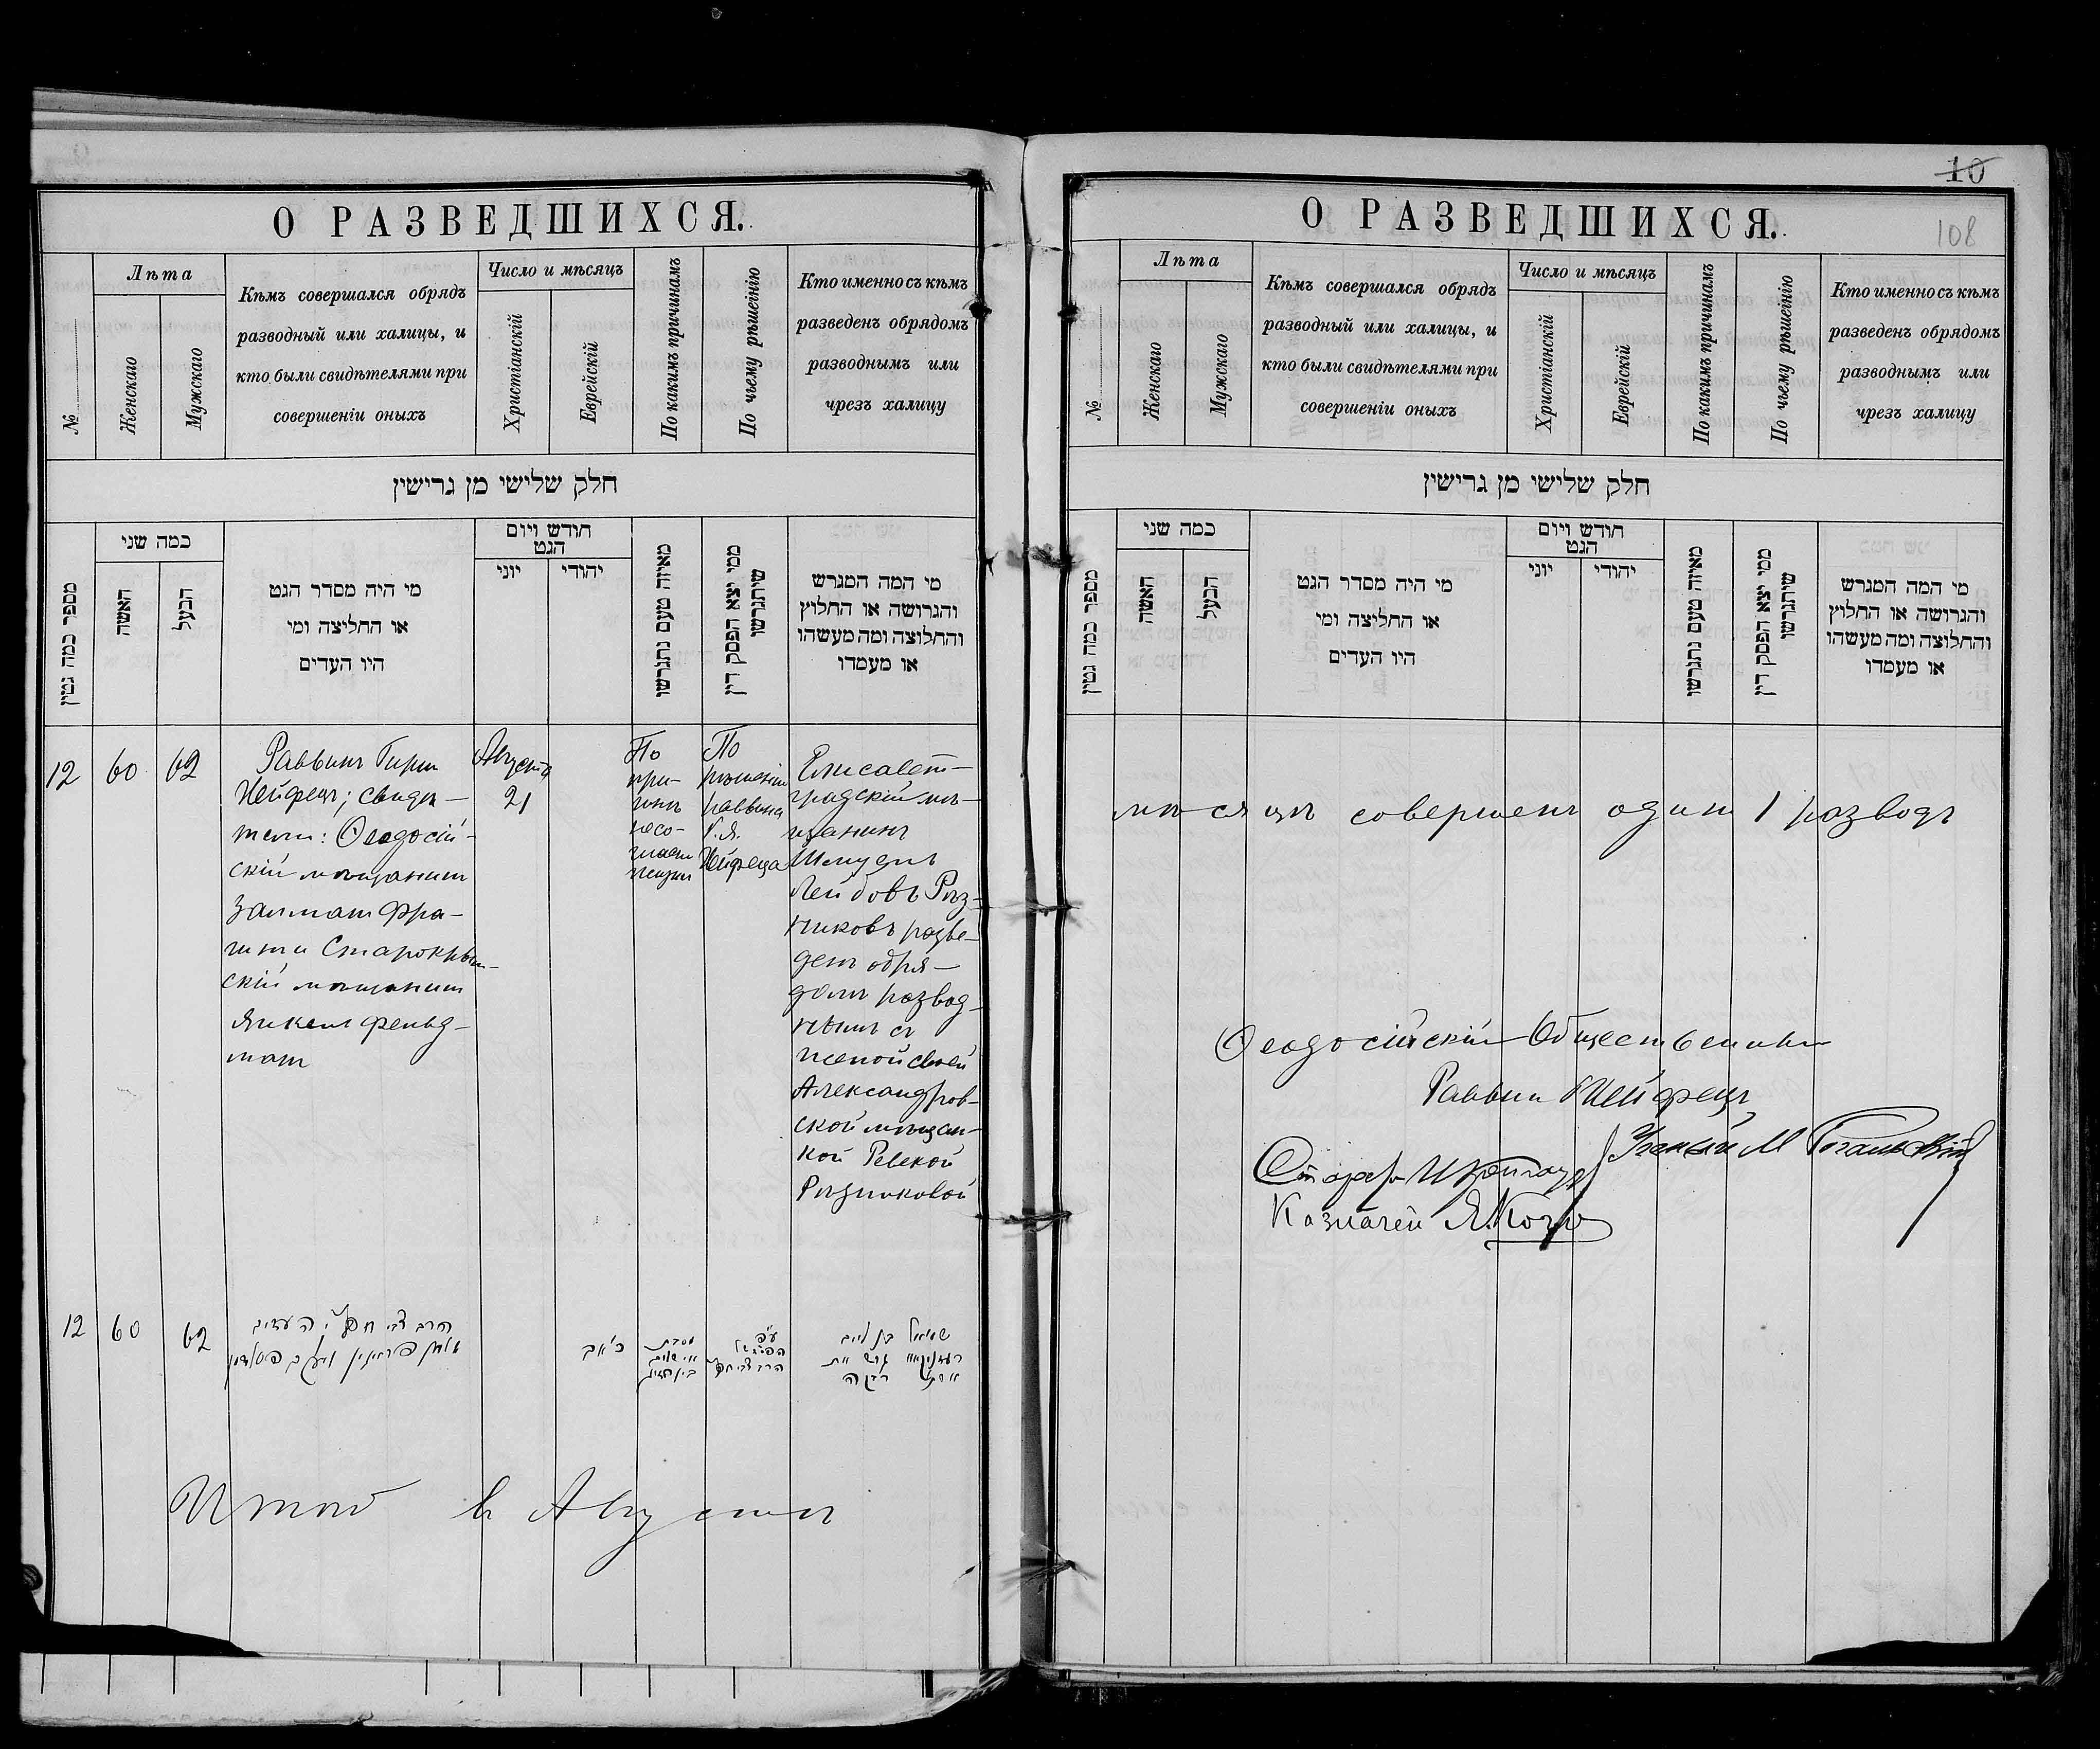 О РАЗВЕДШИХСЯ.
№
Лѣта
Женскаго
Мужскаго
Кѣмъ совершался обрядъ
разводный или халицы, и
кто были свидѣтелями при
совершеніи оныхъ
Число и мѣсяцъ
Христіанскій
Еврейскій
По какимъ причинамъ
По чьему рѣшеінію
Кто именно съ кѣмъ
разведенъ обрядомъ
разводнымъ или
чрезъ халицу
חלק שלישי מן גרישין
מספר כמה גטין
כמה שני
האשה
הבעל
מי היה מסדר הגט
או החליצה ומי
היו העדים
חודש ויום
הגט
יוני
יהודי
מאיזה טעם נתגרשו
ממי יצא הפסק דין
שיתגרשו
מי המה המגרש
והגרושה או החלוץ
והחלוצה ומה מעשהו
או מעמדו
12
60
62
Раввинъ Гирш
Хейфецъ; свидѣ-
тели: Ѳеодосій-
скій мѣщанинъ
Залман Фра-
Старокрым-
скій мѣщанинъ
Янкель Фельд-
ман
Августа
21
По
при-
чинѣ
несо-
гласн
жизни
По
рѣшенію
раввина
Г. Я.
Хейфеца
Елисавет-
градскій мѣ-
щанинъ
Шмуель
Лейбовъ Рѣз-
никовъ разве-
денъ обря-
домъ развод-
нымъ съ
женой своей
Александров-
ской мѣщан-
кой Ревекой
Рѣзниковой
12
60
62
הרב צבי חפץ העדים
כ׳ אב
מסבת
ע״פ
שמואל בן לייב
גרש את
אשתו רבקה
Итого въ Августѣ
10
108
О РАЗВЕДШИХСЯ.
№
Лѣта
Женскаго
Мужскаго
Кѣмъ совершался обрядъ
разводный или халицы, и
кто были свидѣтелями при
совершеніи оныхъ
Число и мѣсяцъ
Христіанскій
Еврейскій
По какимъ причинамъ
По чьему рѣшеінію
Кто именно съ кѣмъ
разведенъ обрядомъ
разводнымъ или
чрезъ халицу
חלק שלישי מן גרישין
מספר כמה גטין
כמה שני
האשה
הבעל
מי היה מסדר הגט
או החליצה ומי
היו העדים
חודש ויום
הגט
יוני
יהודי
מאיזה טעם נתגרשו
ממי יצא הפסק דין
שיתגרשו
מי המה המגרש
והגרושה או החלוץ
והחלוצה ומה מעשהו
או מעמדו
мѣсяцѣ совершенъ один 1 разводъ
Ѳеодосійскій Общественный
Раввин Хейфецъ
Ученый М
Староста
Казначей Я.